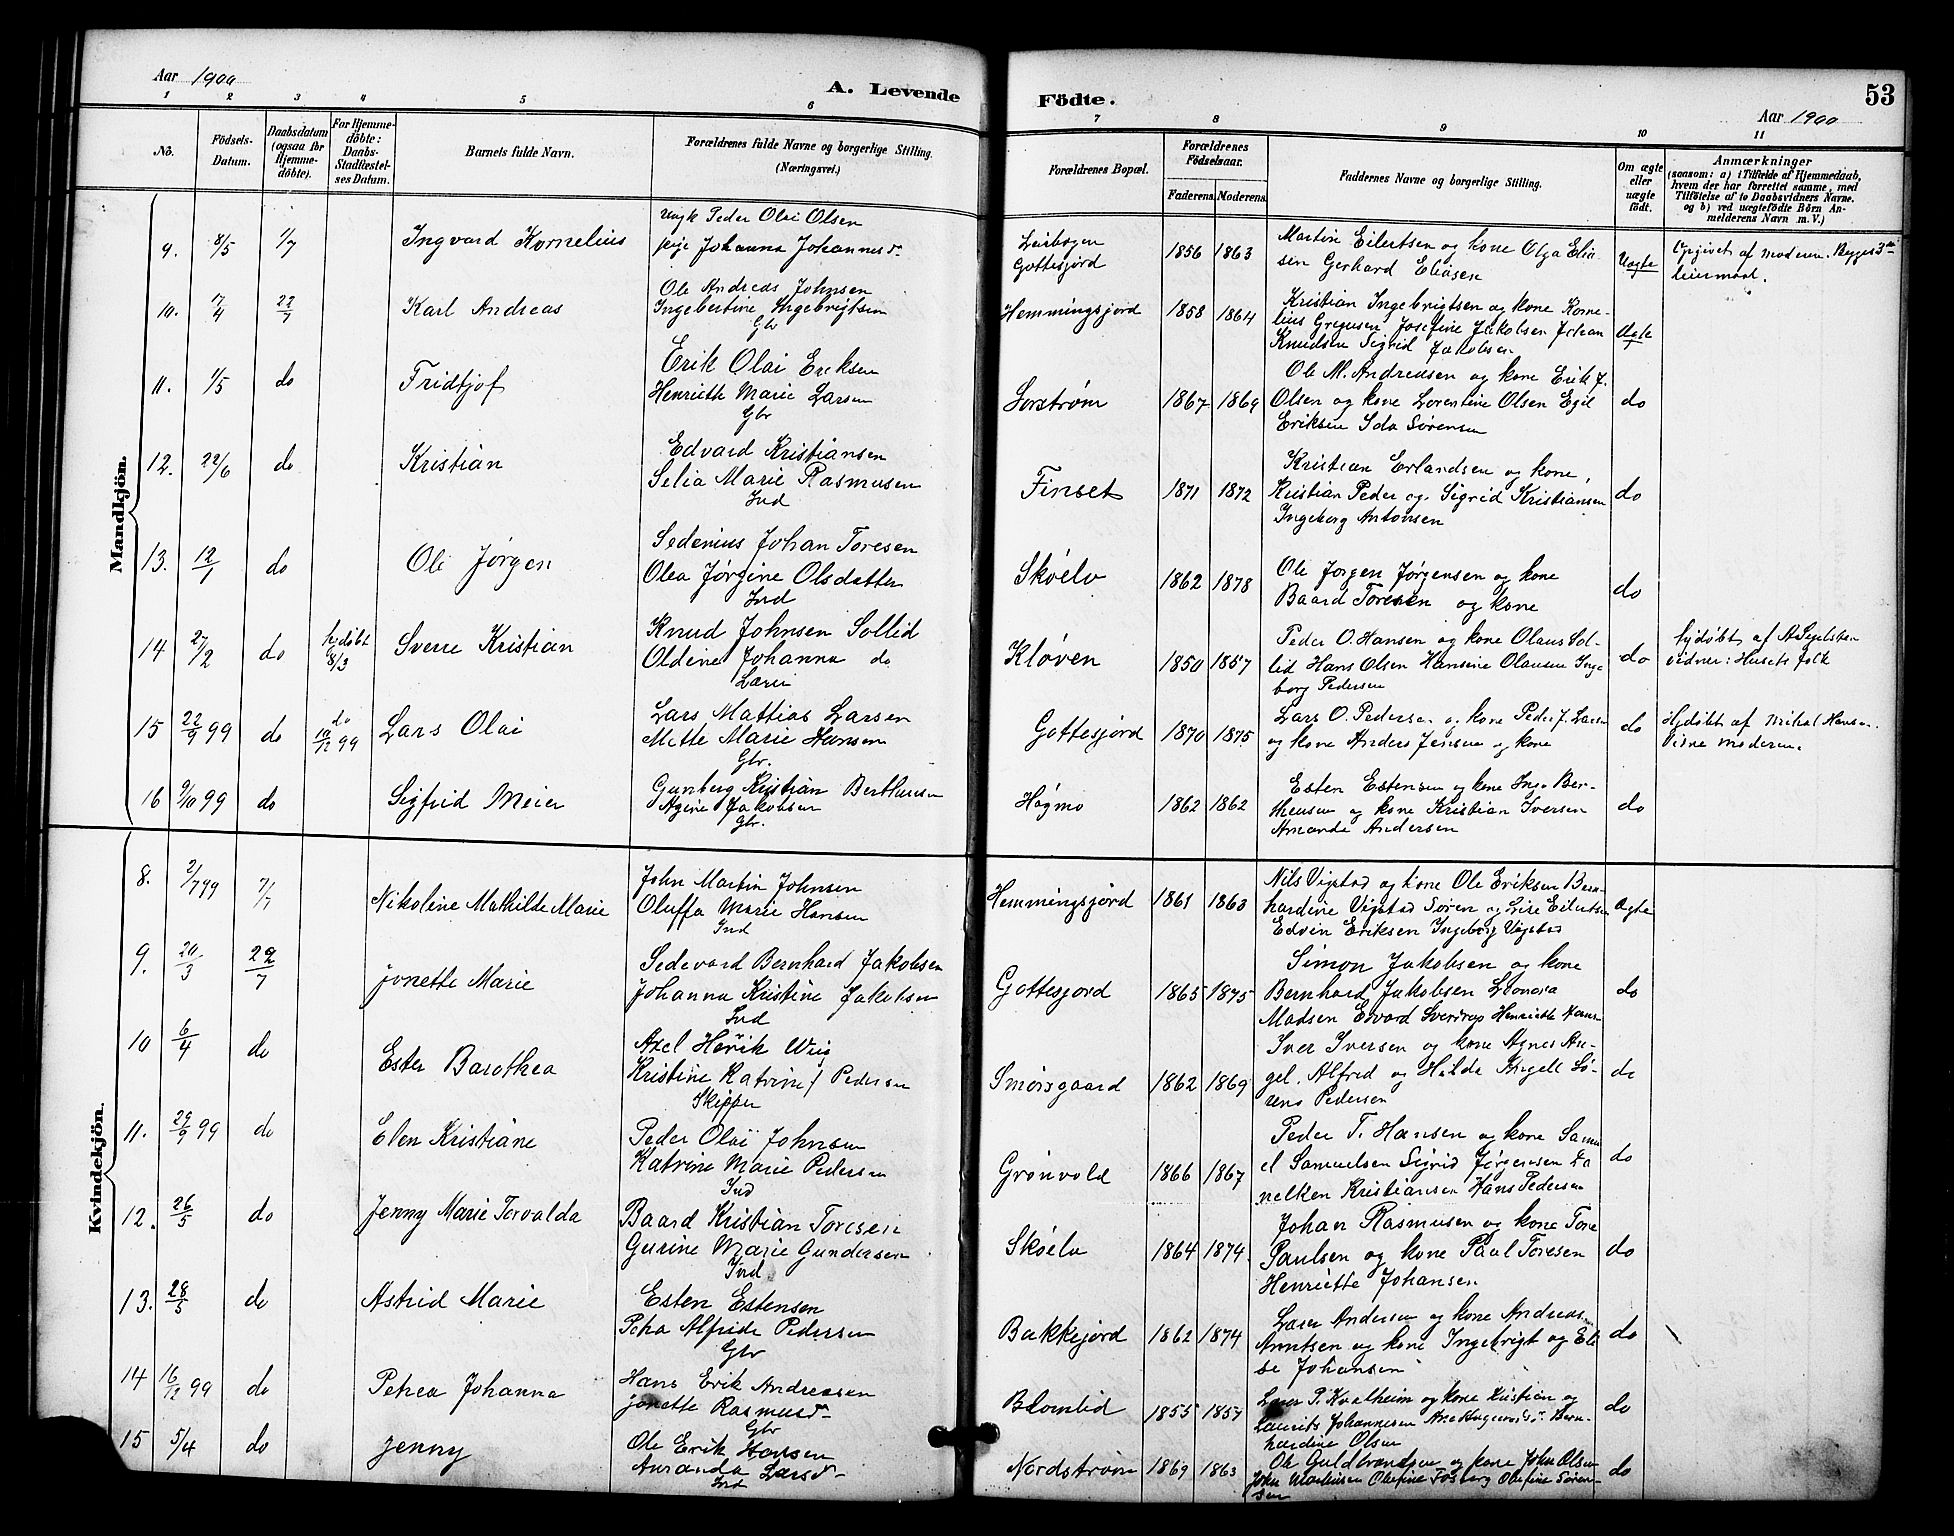 Aar 1900
A. Levende
1 2 3 4 5 6
No.
Födsels-
Datum.
Daabsdatum
(ogsaa for
Hjemme-
döbte).
For Hjemme-
döbte:
Daabs-
Stadfæstel-
ses Datum.
Barnets fulde Navn.
Forældrenes fulde Navne og borgerlige Stilling.
(Næringsvei.)
Mandkjön.
9. 8/5 1/7 Ingvard Kornelius
Ungk Peder Olai Olsen
pige Johanna Johannesd.
10. 17/4 22/7 Karl Andreas
Ole Andreas Johnsen
Ingebertine Ingebrigtsen
Gbr
11. 1/5 do Fridtjof
Erik Olai Eriksen
Henriette Marie Larsen
Gbr
12. 22/6 do Kristian
Edvard Kristiansen
Selia Marie Rasmusen
Ind
13. 12/1 do Ole Jørgen
Sedenius Johan Toresen
Olea Jørgine Olsdatter
Ind
14 27/2 do hjdøbt 8/3 Sverre Kristian
Knud Johnsen Sollid
Oldine Johanna do
Lærer
15 22/9 99 do do 10/12 99 Lars Olai
Lars Mattias Larsen
Mette Marie Hansen
Gbr.
16 9/10 99 do Sigfrid Meier
Gunberg Kristian Bertheusen
Agine Jakobsen
Gbr.
Kvindekjön.
8. 2/7 99 7/7 Nikoline Mathilde Marie
John Martin Johnsen
Oluffa Marie Hansen
Ind
9. 20/3 22/7 Jonette Marie
Sedevard Bernhard Jakobsen
Johanna Kristine Jakobsen
Ind
10 6/4 do Ester Barothea
Axel Hörik Wiig
Kristine Katrine Pedersen
Skipper
11. 29/9 99 do Elen Kristiane
Peder Olai Johnsen
Katrine Marie Pedersen
Ind
12. 26/5 do Jenny Marie Torvalda
Baard Kristian Toresen
Gurine Marie Gundersen
Ind
13. 28/5 do Astrid Marie
Esten Estensen
Petra Alfride Pedersen
Gbr
14 16/12 99 do Petrea Johanna
Hans Erik Andreasen
Jonette Rasmusd-
Gbr
15 5/4 do Jenny
Ole Erik Hansen
Amanda Larsd-
Ind
Födte.
53
Aar 1900
7 8 9 10 11
Forældrenes Bopæl.
Forældrenes
Födselsaar.
Faderens. Moderens.
Faddernes Navne og borgerlige Stilling.
Om ægte
eller
uægte
födt.
Anmærkninger
(saasom: a) i Tilfælde af Hjemmedaab,
hvem der har forrettet samme, med
Tilföielse af to Daabsvidners Navne.
og b) ved uægtefödte Börn An-
melderens Navn m. V.)
Leirbogen
Gottesjord
1856 1863
Martin Eilertsen og kone Olga Elia-
sen Gerhard Eliasen
Uægte
Opgivet af moderen. Begges 3die
leiermaal.
Hemmingsjord 1858 1864
Kristian Ingebrigtsen og kone Korne-
lius Gregusen Josefine Jakobsen Johan
Knudsen Sigrid Jakobsen
Ægte
Sorstrøm 1867 1869
Ole M. Andreasen og kone Erik J.
Olsen og kone Lorentine Olsen Egil
Eriksen Ida Sørensen
do
Finset 1871 1872
Kristian Erlandsen og kone,
Kristian Peder og Sigrid Kristiansen
Ingeborg Antonsen
do
Skøelv 1862 1878
Ole Jorgen Jørgensen og kone
Baard Toresen og kone
do
Kløven 1850 1857
Peder O. Hansen og kone Olaus Sol-
lid Hans Olsen Hansine Olausen Inge
borg Pedersen
do
hjdøbt af A Segelsten
vidner: Husets folk
Gottesjord 1870 1875
Lars O. Pedersen og kone Peder J. Larsen
og kone Anders Jensen og kone
do
Hjdøbt af Mikal Hansen.
Vidne moderen.
Høgmo 1862 1862
Esten Estensen og kone Inga Ber-
theusen og kone Kristian Iversen
Amanda Andersen
do
Hemmingsjord 1861 1863
Nils Vigstad og kone Ole Eriksen Bern-
hardine Vigstad Søren og Lise Eilertsen
Edvin Eriksen Ingeborg Vigstad
Ægte
Gottesjord 1865 1875
Simon Jakobsen og kone
Bernhard Jakobsen Leonora
Madsen Edvard Sverdrup Henriette Hans-
do
Smørsgaard 1862 1869
Iver Iversen og kone Agnes An-
gel. Alfred og Hilda Kingell Sö-
rens Pedersen
do
Grønvold 1866 1867
Peder T. Hansen og kone Samu
el Samuelsen Sigrid Jørgensen Da
nelken Kristiansen Hans Pedersen
do
Skøelv 1864 1874
Johan Rasmusen og kone Tore
Paulsen og kone Paul Toresen
Henriette Johansen
do
Bakkejord 1862 1874
Laser Andersen og kone Andreas
Arntsen og kone Ingebrigt og Eli
se Johansen
do
Blomlid 1855 1857
Laser P. Kvalheim og kone Kristian og
Laurits Johannesen Ane Bern-
hardine Olsen
do
Nordstrøm 1869 1863
Ole Guldbrandsen og kone John Olsen
John Martinsen Olefine Fosberg Olefine Sören-
sen
do